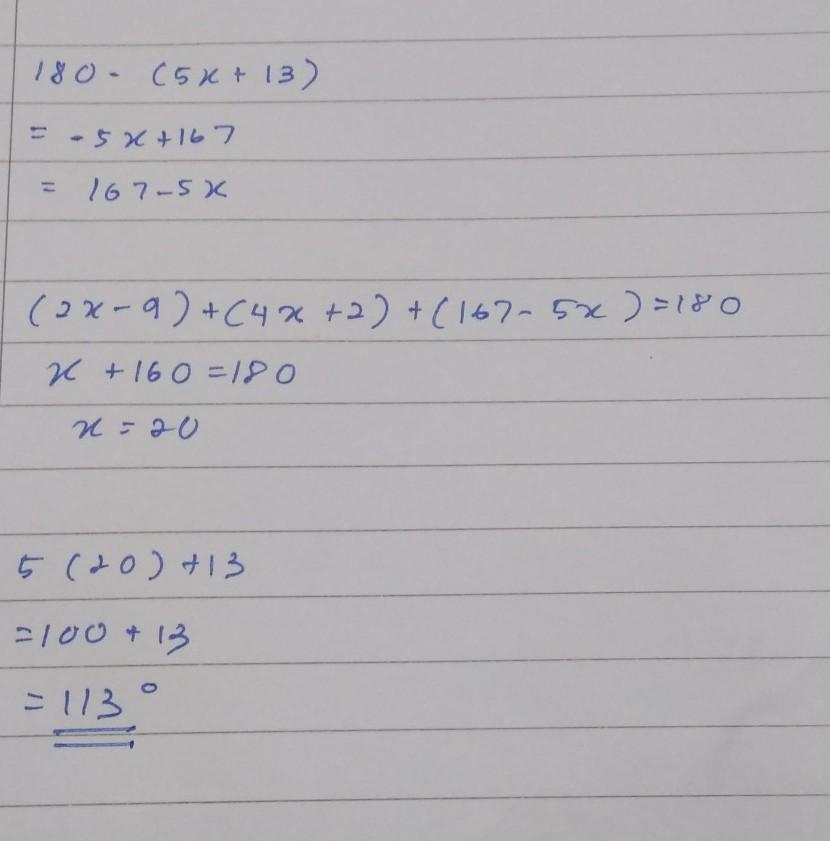 180 - (5x + 13)
= -5x+167
= 167-5x
(2x-9)+(4x+2)+(167-5x)=180
x +160=180
x = 20
5 (20) +13
=100 + 13
= 113°